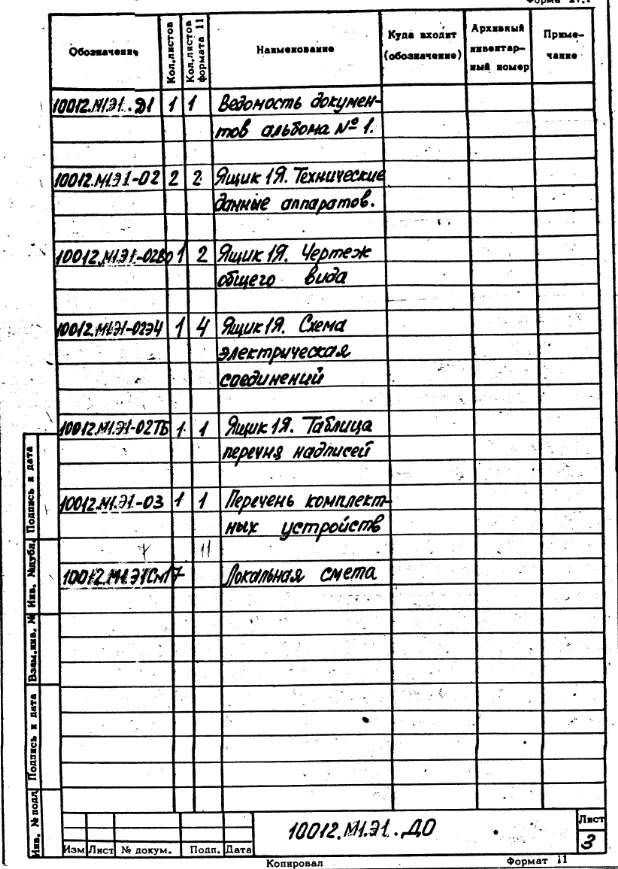 Форма
Обозначение Кол.листов Кол.листов формата 11 Наименование Куда входит (обозначение) Архивный инвентарный номер Примечание
10012.М1.Э1..Д1 1 1 Ведомость докумен-
тов альбома № 1.
10012.М1.Э1-02 2 2 Ящик 1Я. Технические
данные аппаратов.
10012.М1.Э1-02ВО 1 2 Ящик 1Я. Чертеж
общего вида
10012.М1.Э1-02Э4 1 4 Ящик 1Я. Схема
электрическая
соединений
10012.М1.Э1-02ТБ 1 1 Ящик 1Я. Таблица
перечня надписей
10012.М1.Э1-03 1 1 Перечень комплект-
ных устройств
11
10012.М1.Э1См17 Локальная смета
Подпись и дата
Инв. №дубл.
Взам.инв. №
Подпись и дата
Инв. № подл
10012.М1.Э1..ДО
Лист
3
Изм Лист № докум. Подп. Дата
Копировал Формат 11